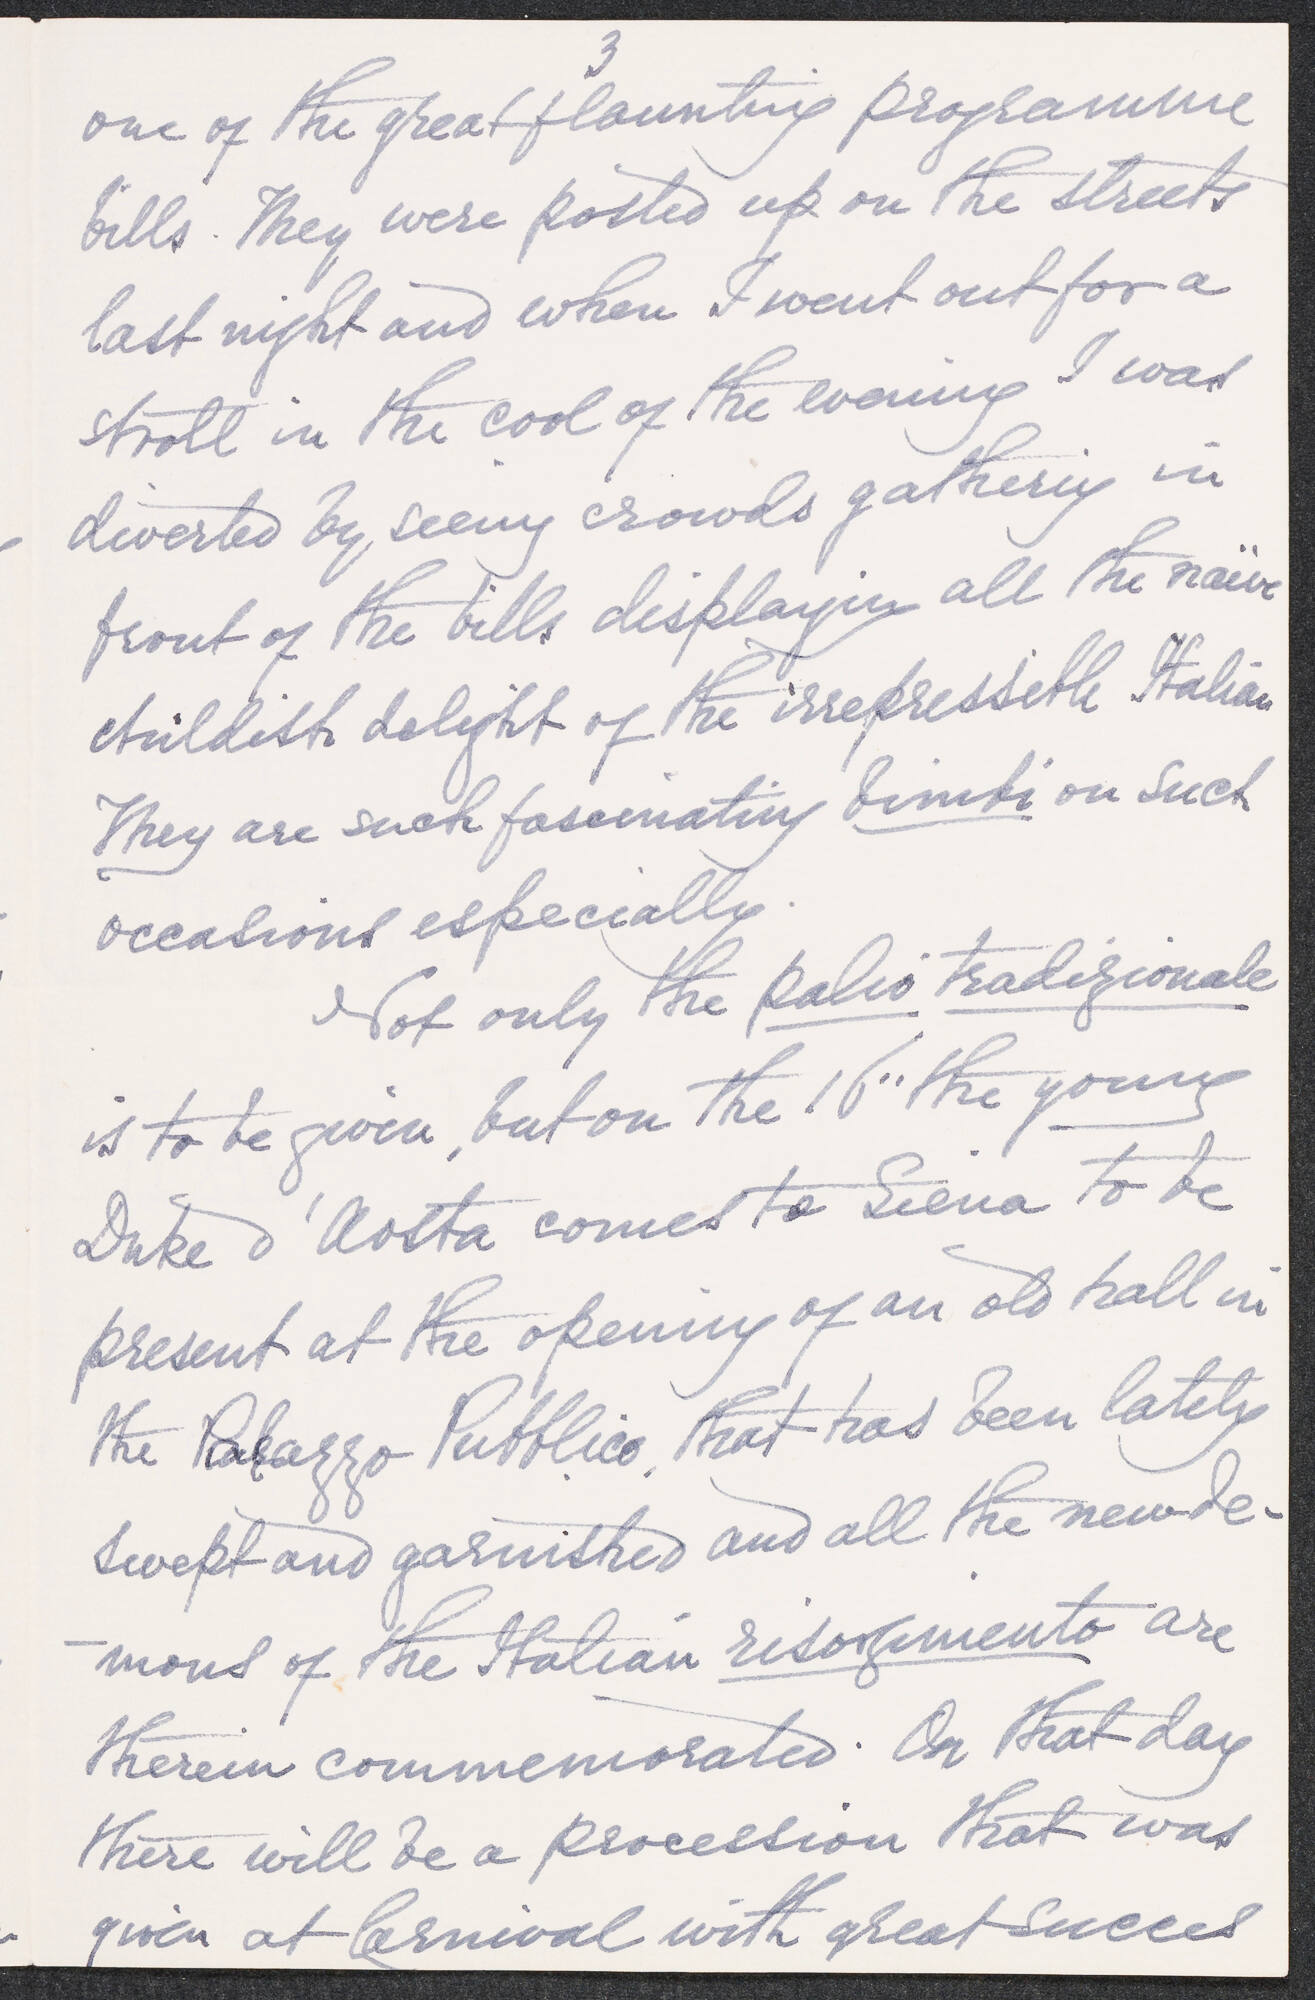 3
one of the great flaunting programme
bills. They were posted up on the streets
last night and when I went out for a
stroll in the cool of the evening I was
diverted by seeing crowds gathering in
front of the bills displaying all the naïve
childish delight of the irrepressible Italian
They are such fascinating bimbi on such
occasions especially.
Not only the palio tradizionale
is to be given, but on the 16" the young
Duke d'Aosta comes to Siena to be
present at the opening of an old hall in
the Palazzo Pubblico, that has been lately
swept and garnished and all the new de-
-mons of the Italian risorgimento are
therein commemorated. On that day
there will be a procession that was
given at Carnival with great succes